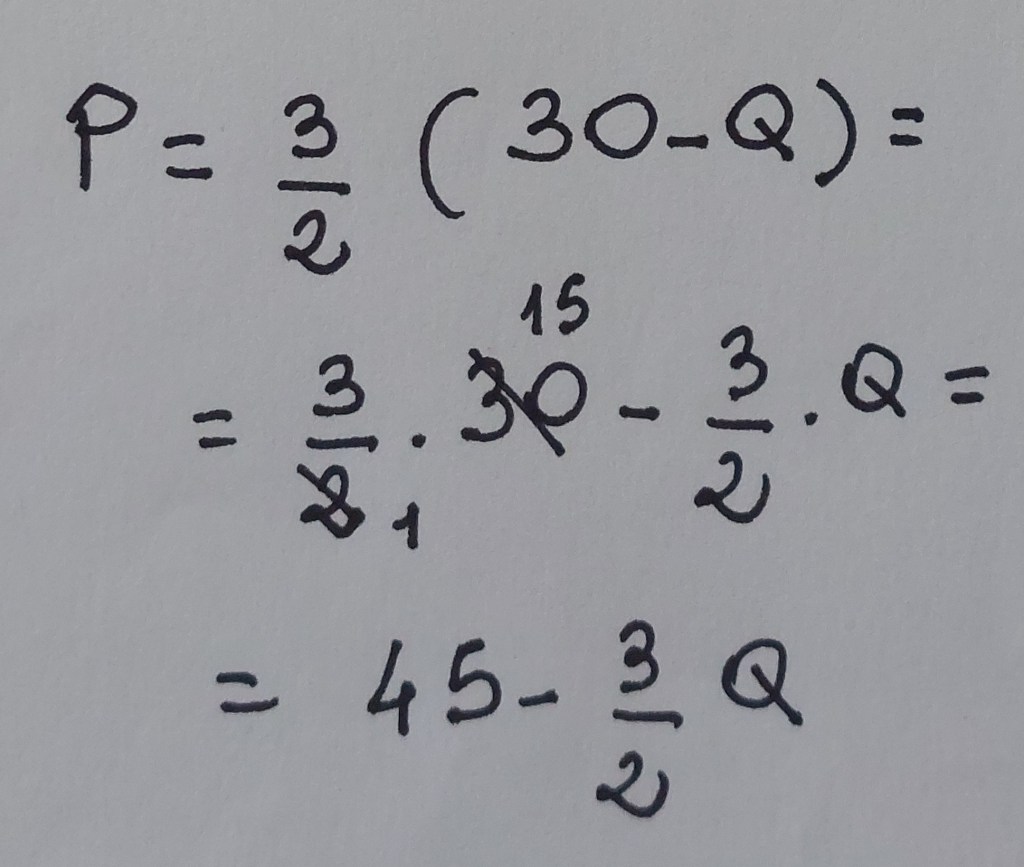 P = 3/2 (30 - Q) =
= 3/2 1 · 30 15 - 3/2 · Q =
= 45 - 3/2 Q